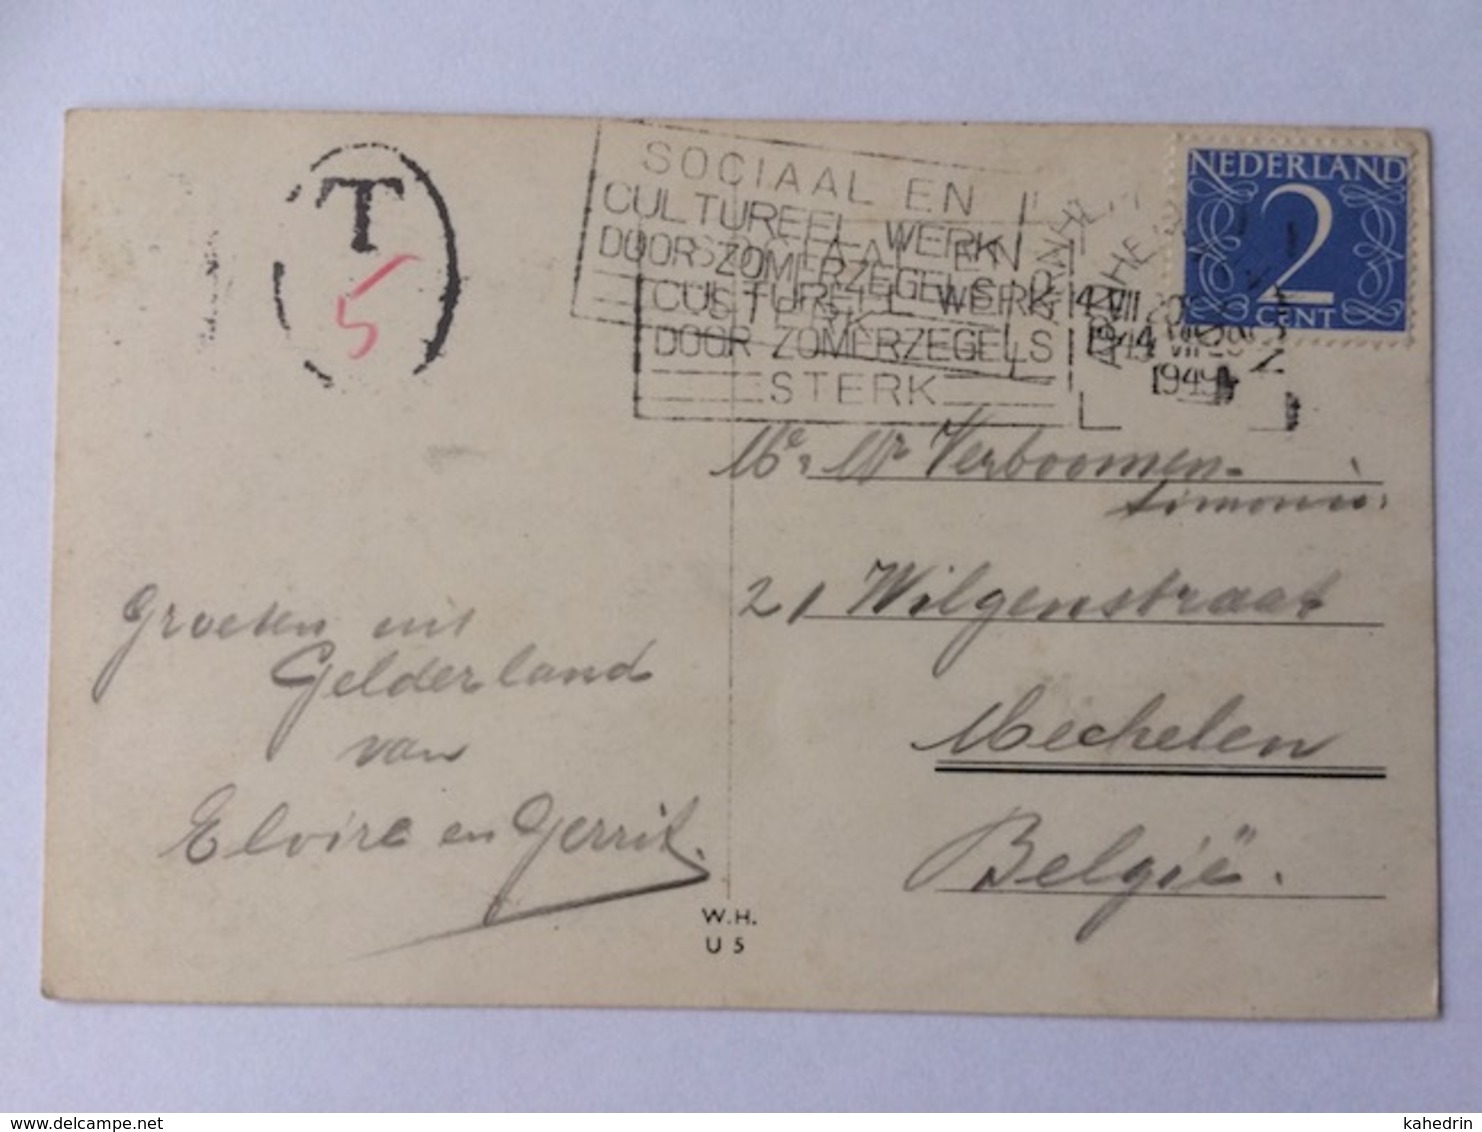 T
5
SOCIAAL EN
CULTUREEL WERK
DOOR ZOMERZEGELS
CULTUREEL WERK
DOOR ZOMERZEGELS
STERK
ARNHEM
4 VII
1949
NEDERLAND
2
CENT
Me. Mr Verboomen-
Simonis.
21 Wilgenstraat
Mechelen
België.
Groeten uit
Gelderland
van
Elvire en Gerrit.
W.H.
U 5
delcampe.net
kahedrin